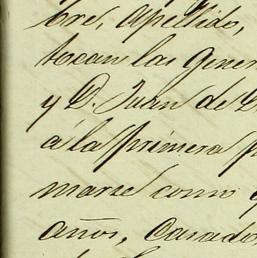 bre, apellido,
tocan las gener
y D. Juan de
á la primera p
marse como
años, Casado